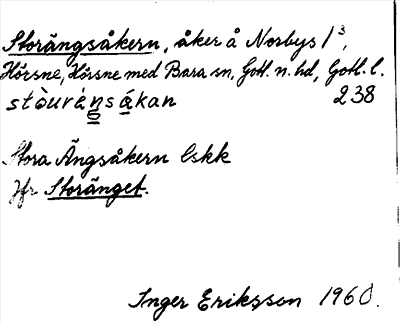 Storängsåkern, åker å Norbys 1³,
Hörsne, Hörsne med Bara sn, Gotl. n. hd, Gotl. l.
stòuréngsákan 238
Stora Ängsåkern Cskk
Jfr Storänget.
Inger Eriksson 1960.